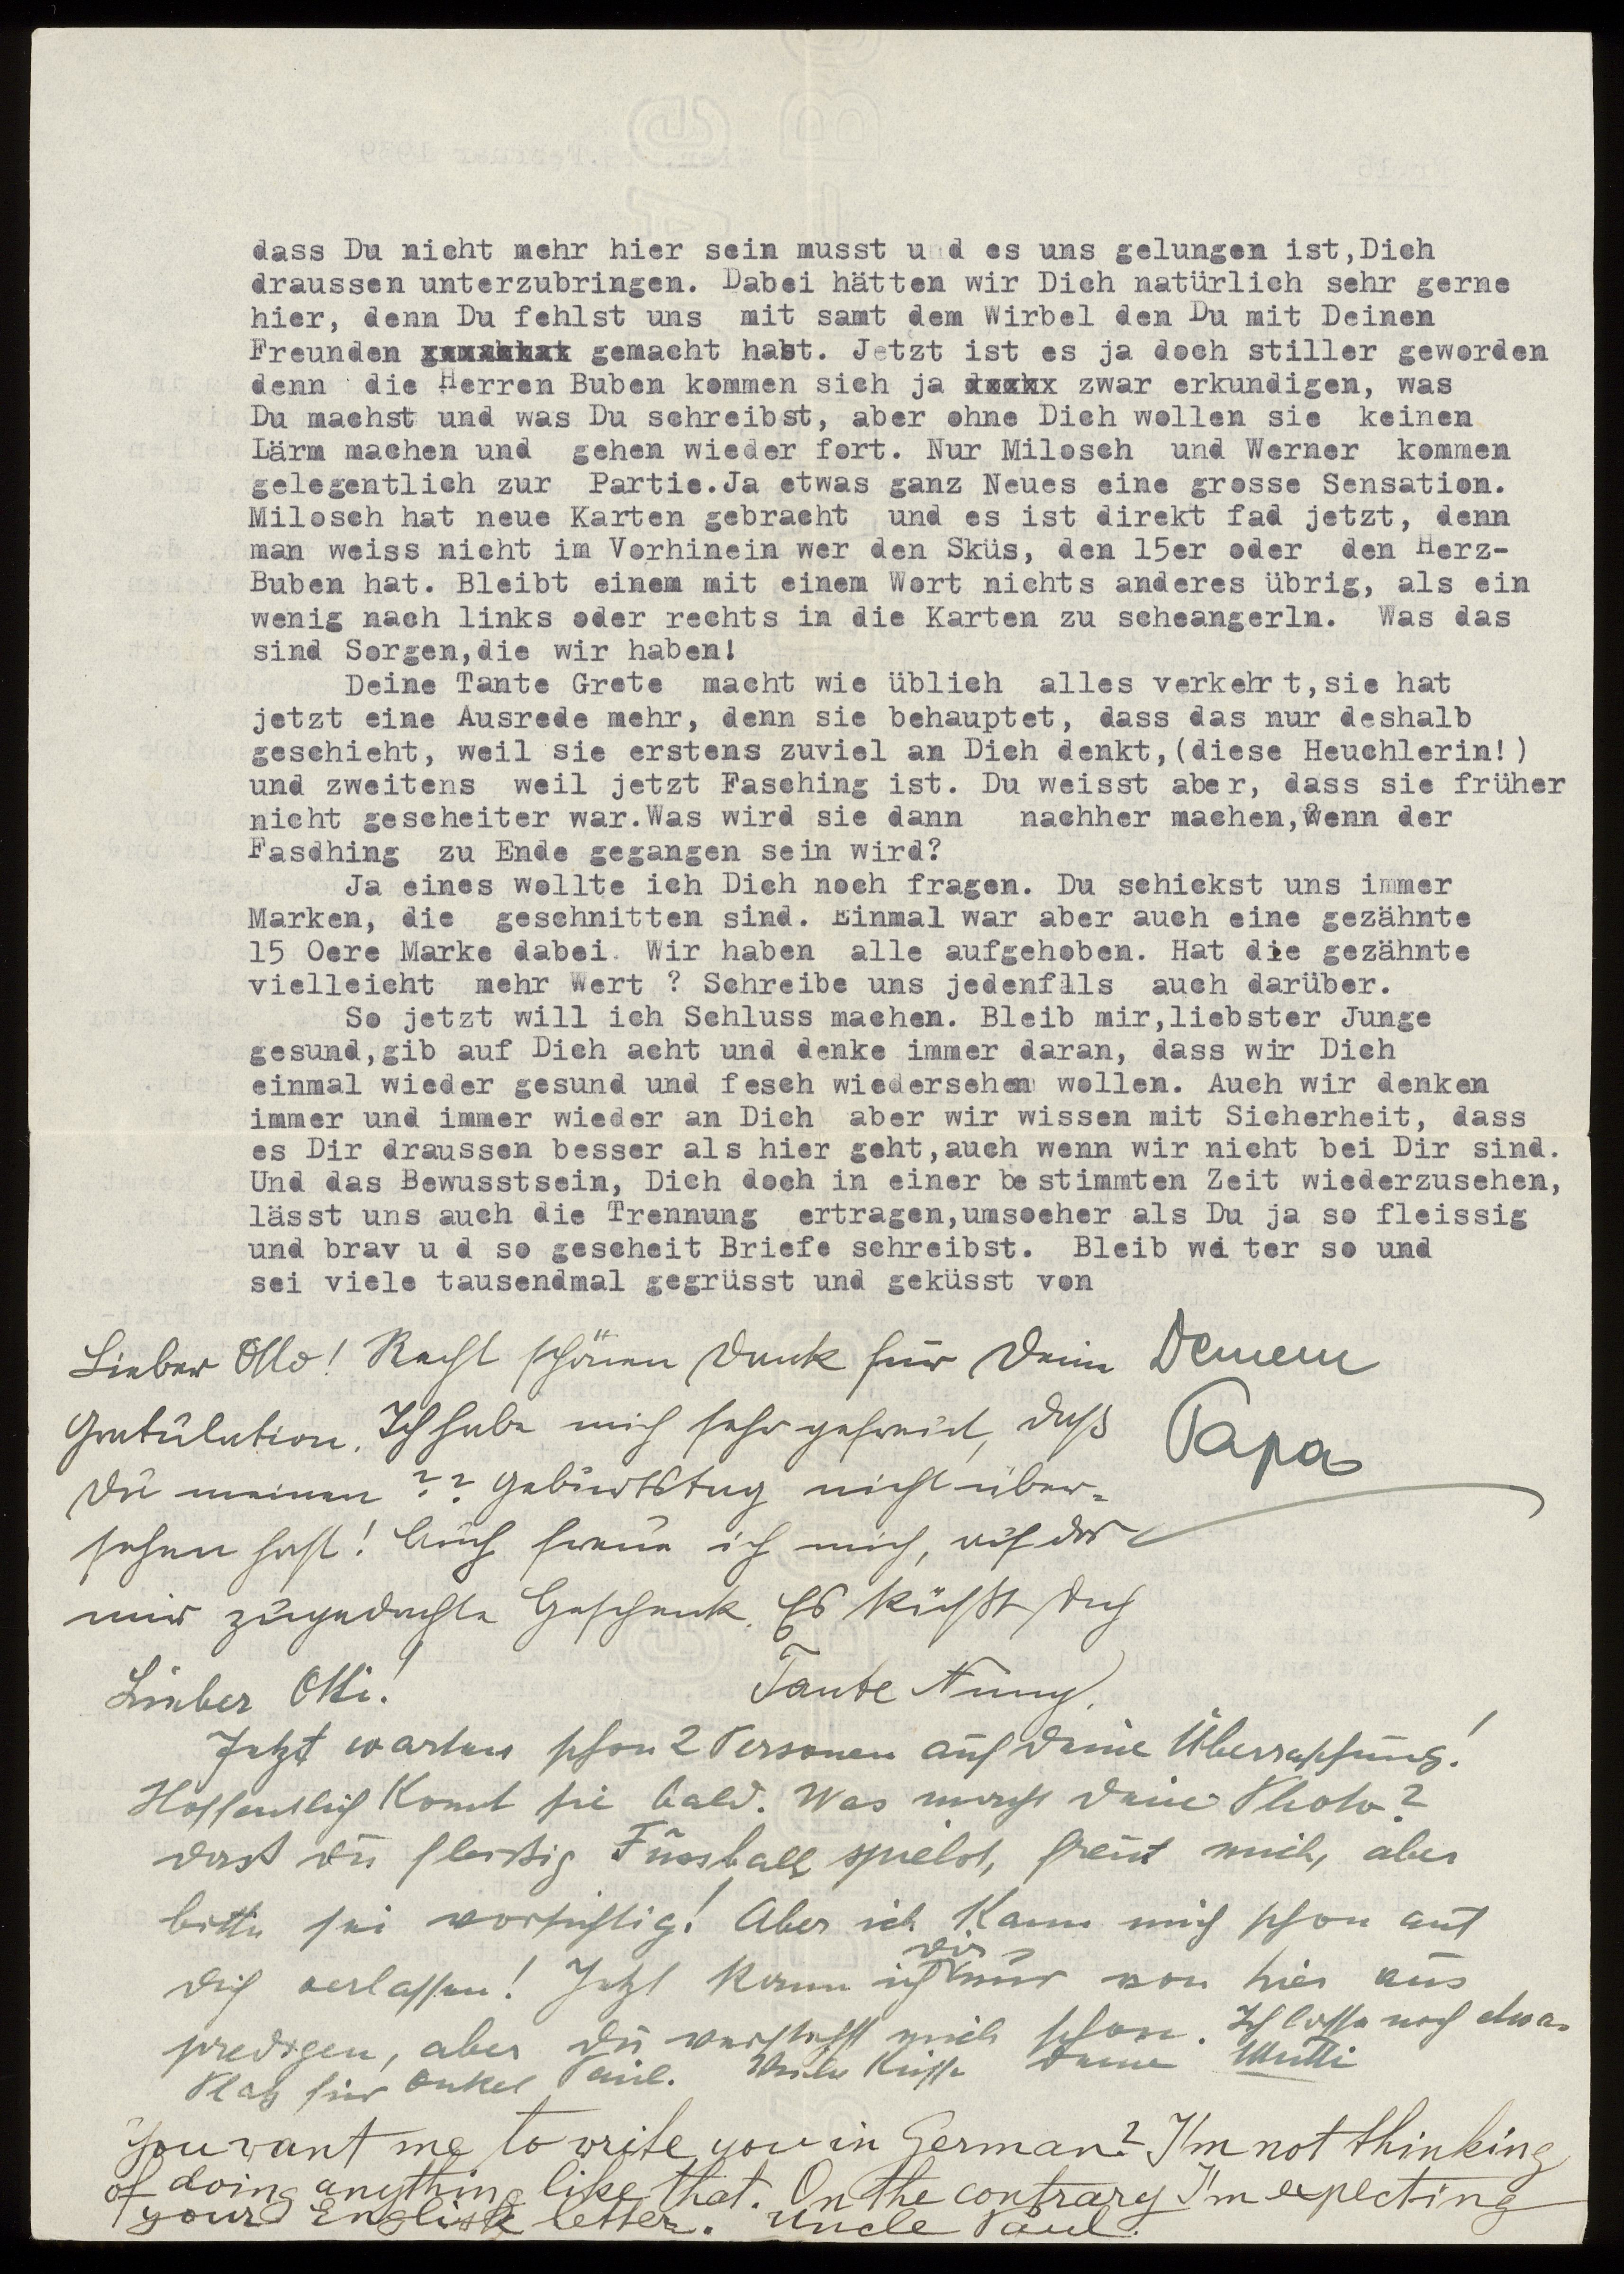 dass Du nicht mehr hier sein musst u d es uns gelungen ist,Dich
draussen unterzubringen. Dabei hätten wir Dich natürlich sehr gerne
hier, denn Du fehlst uns mit samt dem Wirbel den Du mit Deinen
Freunden gemacht habt. Jetzt ist es ja doch stiller geworden
denn die Herren Buben kommen sich ja zwar erkundigen, was
Du machst und was Du schreibst, aber ohne Dich wollen sie keinen
Lärm machen und gehen wieder fort. Nur Milosch und Werner kommen
gelegentlich zur Partie.Ja etwas ganz Neues eine grosse Sensation.
Milosch hat neue Karten gebracht und es ist direkt fad jetzt, denn
man weiss nicht im Vorhinein wer den Sküs, den 15er oder den Herz-
Buben hat. Bleibt einem mit einem Wort nichts anderes übrig, als ein
wenig nach links oder rechts in die Karten zu scheangerln. Was das
sind Sorgen,die wir haben!
Deine Tante Grete macht wie üblich alles verkehrt,sie hat
jetzt eine Ausrede mehr, denn sie behauptet, dass das nur deshalb
geschieht, weil sie erstens zuviel an Dich denkt,(diese Heuchlerin!)
und zweitens weil jetzt Fasching ist. Du weisst aber, dass sie früher
nicht gescheiter war.Was wird sie dann nachher machen,wenn der
Fasdhing zu Ende gegangen sein wird?
Ja eines wollte ich Dich noch fragen. Du schickst uns immer
Marken, die geschnitten sind. Einmal war aber auch eine gezähnte
15 Oere Marke dabei. Wir haben alle aufgehoben. Hat die gezähnte
vielleicht mehr Wert ? Schreibe uns jedenfalls auch darüber.
So jetzt will ich Schluss machen. Bleib mir,liebster Junge
gesund,gib auf Dich acht und denke immer daran, dass wir Dich
einmal wieder gesund und fesch wiedersehen wollen. Auch wir denken
immer und immer wieder an Dich aber wir wissen mit Sicherheit, dass
es Dir draussen besser als hier geht,auch wenn wir nicht bei Dir sind.
Und das Bewusstsein, Dich doch in einer bestimmten Zeit wiederzusehen,
lässt uns auch die Trennung ertragen,umsoeher als Du ja so fleissig
und brav u d so gescheit Briefe schreibst. Bleib wei ter so und
sei viele tausendmal gegrüsst und geküsst von
Deinem
Papa
Lieber Otto! Recht schönen Dank für Deine
Gratulation. Ich habe mich sehr gefreut, daß
Du meinen ?? Geburtstag nicht über-
sehen hast! Auch freue ich mich, auf das
mir zugedachte Geschenk. Es küßt Dich
Tante Nuny.
Lieber Otti!
Jetzt warten schon 2 Personen auf Deine Überraschung!
Hoffentlich kommt sie bald. Was macht Deine Photo?
Dass Du fleißig Fussball spielst, freut mich, aber
bitte sei vorsichtig! Aber ich kann mich schon auf
Dich verlassen! Jetzt kann ich Dir nur von hier aus
predigen, aber Du verstehst mich schon. Ich lasse noch etwas
Platz für Onkel Paul. Viele Küsse Deine Mutti
You want me to write you in German? I'm not thinking
of doing anything like that. On the contrary I'm expecting
your English letter. Uncle Paul.